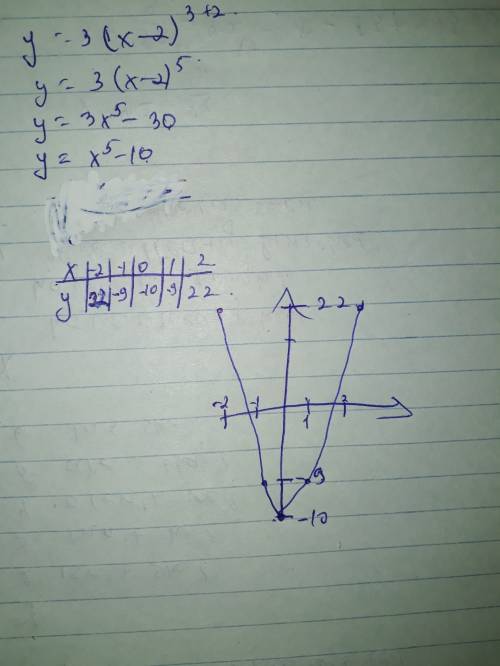 y = 3(x-2)^3+2
y = 3(x-2)^5
y = 3x^5 - 30
y = x^5 - 10
x | -2 | -1 | 0 | 1 | 2
y | 22 | -9 | -10 | -9 | 22
22
-2 -1 1 2
1 1
-9
-10